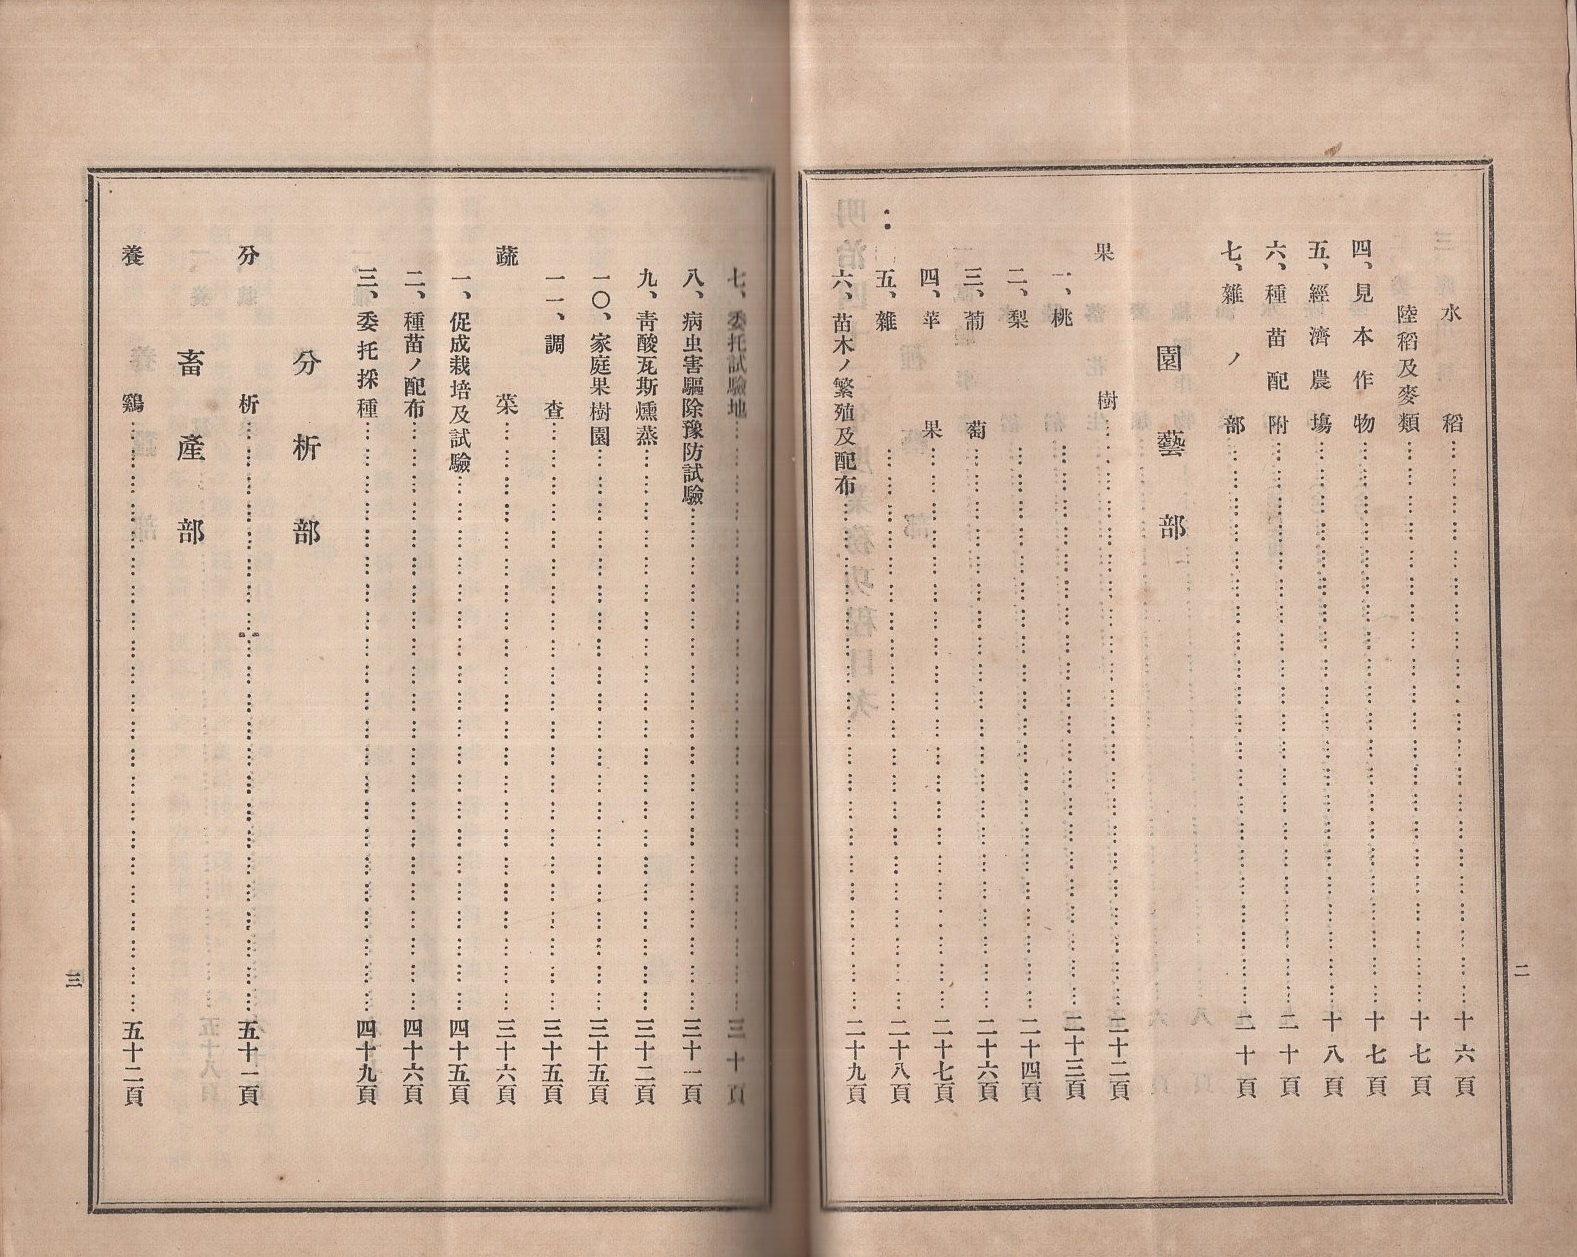 水稻……十六頁
陸稻及麥類……十七頁
四、見本作物……十七頁
五、經濟農場……十八頁
六、種苗配附……二十頁
七、雜ノ部……二十頁
園藝部
果樹……二十二頁
一、桃……二十三頁
二、梨……二十四頁
三、葡萄……二十六頁
四、苹果……二十七頁
五、雜……二十八頁
六、苗木ノ繁殖及配布……二十九頁
二
七、委托試驗地……三十頁
八、病虫害驅除豫防試驗……三十一頁
九、靑酸瓦斯燻蒸……三十二頁
一〇、家庭果樹園……三十五頁
一一、調查……三十五頁
蔬菜……三十六頁
一、促成栽培及試驗……四十五頁
二、種苗ノ配布……四十六頁
三、委托採種……四十九頁
分析部
分析……五十一頁
畜產部
養鷄……五十二頁
三